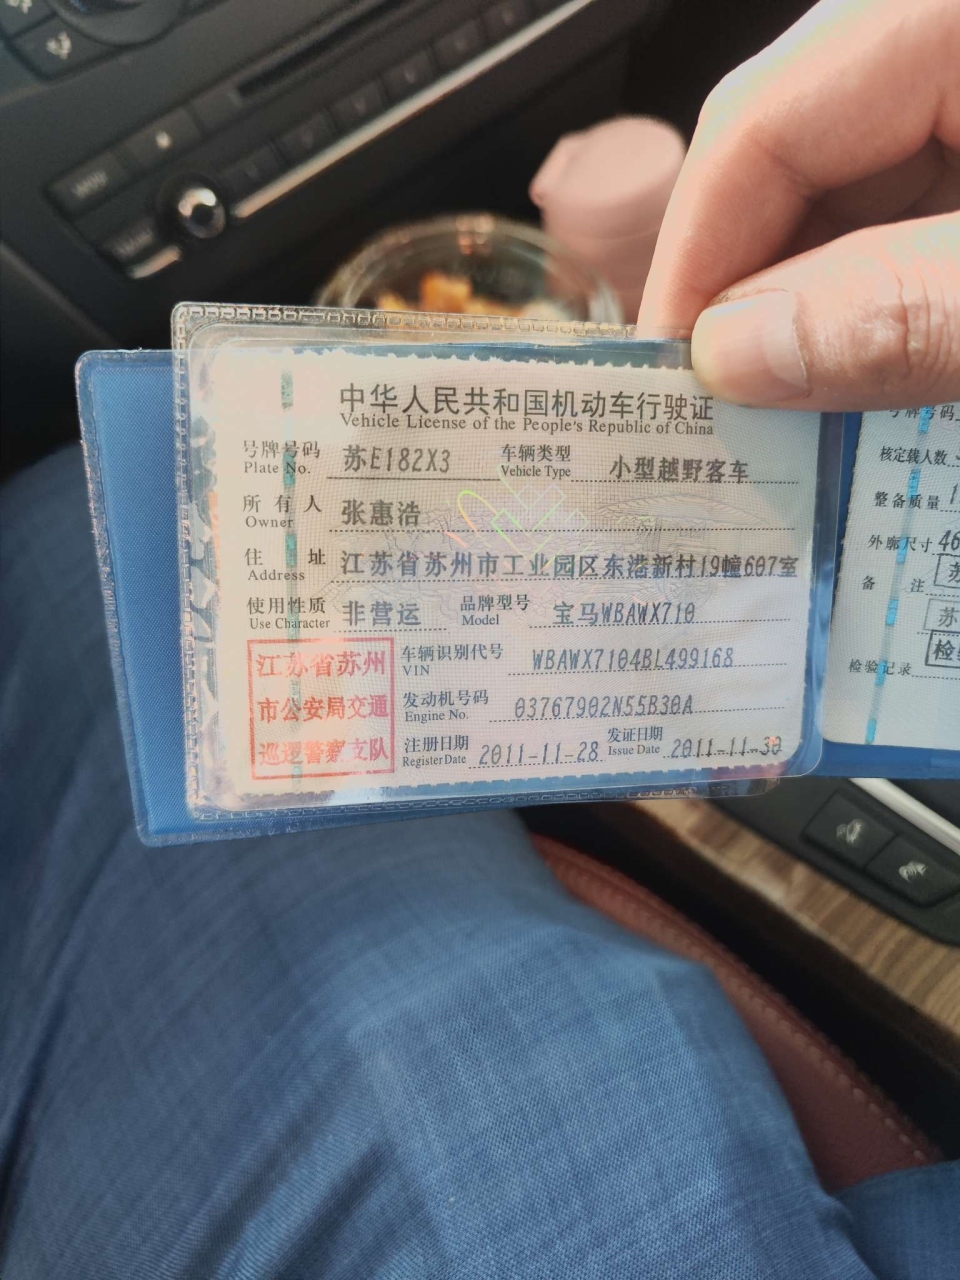 中华人民共和国机动车行驶证
Vehicle License of the People's Republic of China
号牌号码 苏E182X3 车辆类型 小型越野客车
Plate No. Vehicle Type
所有人 张惠浩
Owner
住址 江苏省苏州市工业园区东港新村19幢607室
Address
使用性质 非营运 品牌型号 宝马WBAWX710
Use Character Model
江苏省苏州
市公安局交通
巡逻警察支队
车辆识别代号 WBAWX7104BL499168
VIN
发动机号码 03767902N55B30A
Engine No.
注册日期 2011-11-28 发证日期 2011-11-30
Register Date Issue Date
号牌号码
核定载人数
整备质量 1
外廓尺寸 46
备注 苏
苏
检
检验记录